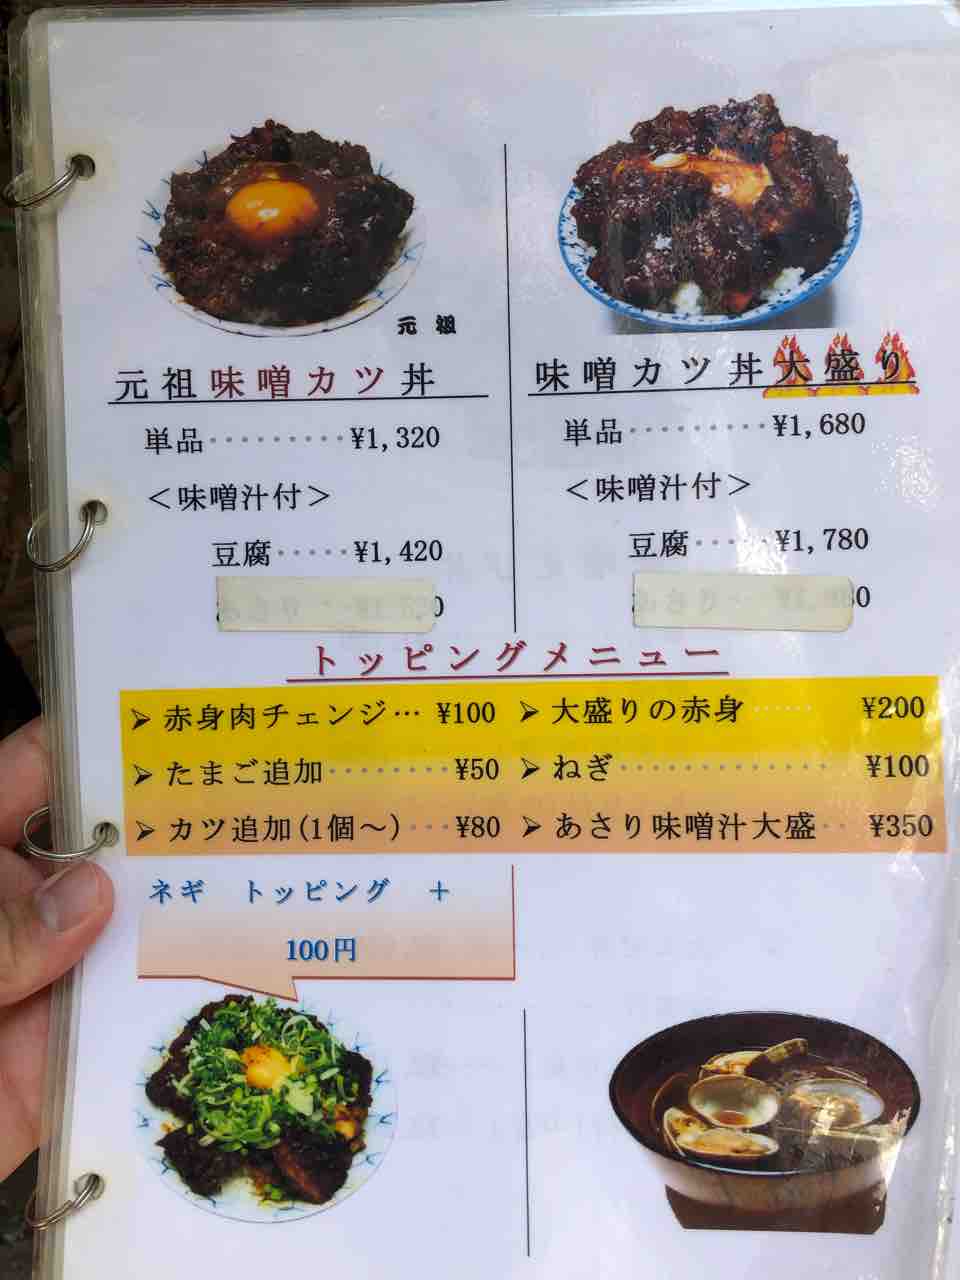 元祖
元祖味噌カツ丼
単品·········¥1,320
＜味噌汁付＞
豆腐·····¥1,420
味噌カツ丼大盛り
単品·········¥1,680
＜味噌汁付＞
豆腐·····¥1,780
トッピングメニュー
➢ 赤身肉チェンジ… ¥100
➢ 大盛りの赤身…… ¥200
➢ たまご追加········¥50
➢ ねぎ·············· ¥100
➢ カツ追加(1個～)···¥80
➢ あさり味噌汁大盛·· ¥350
ネギ トッピング ＋
100円